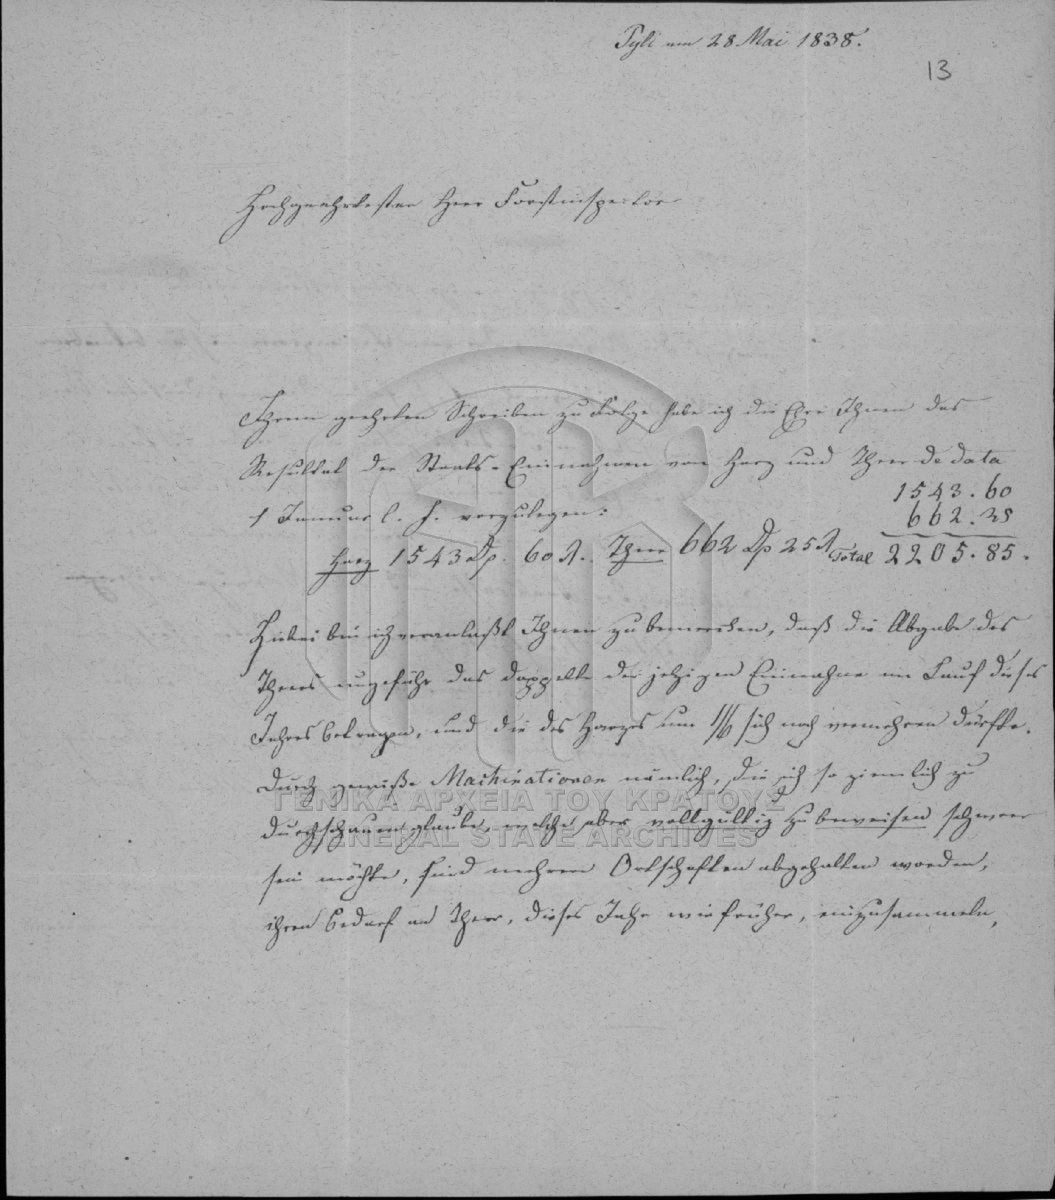 Pyli am 28 Mai 1838.
13
Hochgeehrtester Herr Forstinspector
Ihrem geehrten Schreiben zu Folge habe ich die Ehre Ihnen das
Resultat der Staats-Einnahmen von Harz und Theer de data
1 Januar l. J. vorzulegen:
1543.60
662.25
Harz 1543 Dρ. 60 λ. Theer 662 Dρ 25 λ Total 2205.85.
Hiebei bin ich veranlaßt Ihnen zu bemercken, daß die Abgabe des
Theers ungefähr das doppelte der jetzigen Einnahme im Lauf dieses
Jahres betragen, und die des Harzes um 1/6 sich noch vermehren dürfte.
Durch gewiße Machinationen nämlich, die ich so ziemlich zu
durchschauen glaube, welche aber vollgültig zu beweisen schwer
sein möchte, sind mehrere Ortschaften abgehalten worden,
ihren Bedarf an Theer, dieses Jahr wie früher, einzusammeln,
ΓΕΝΙΚΑ ΑΡΧΕΙΑ ΤΟΥ ΚΡΑΤΟΥΣ
GENERAL STATE ARCHIVES